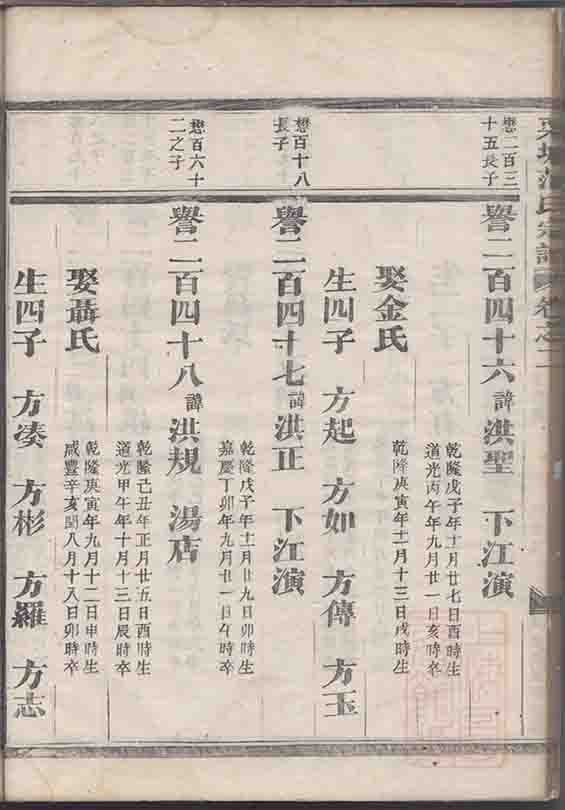 范氏宗譜 卷之二
懋二百三
十五長子
譽二百四十六諱洪聖 下江演
乾隆戊子年十一月廿七日酉時生
道光丙午年九月廿一日亥時卒
娶金氏
乾隆庚寅年十二月十三日戌時生
生四子 方起 方如 方傳 方玉
懋百十八
長子
譽二百四十七諱洪正 下江演
乾隆戊子年十一月廿九日卯時生
嘉慶丁卯年九月廿一日午時卒
懋百六十
二之子
譽二百四十八諱洪規 湯店
乾隆己丑年正月廿五日酉時生
道光甲午年十月十三日辰時卒
娶聶氏
乾隆庚寅年九月十二日申時生
咸豐辛亥閏八月十八日卯時卒
生四子 方凑 方彬 方羅 方志